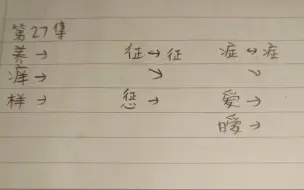 第27集
养→ 征↔征 症↔症
痒→ ↘ ↘
样→ 惩→ 爱→
暧→